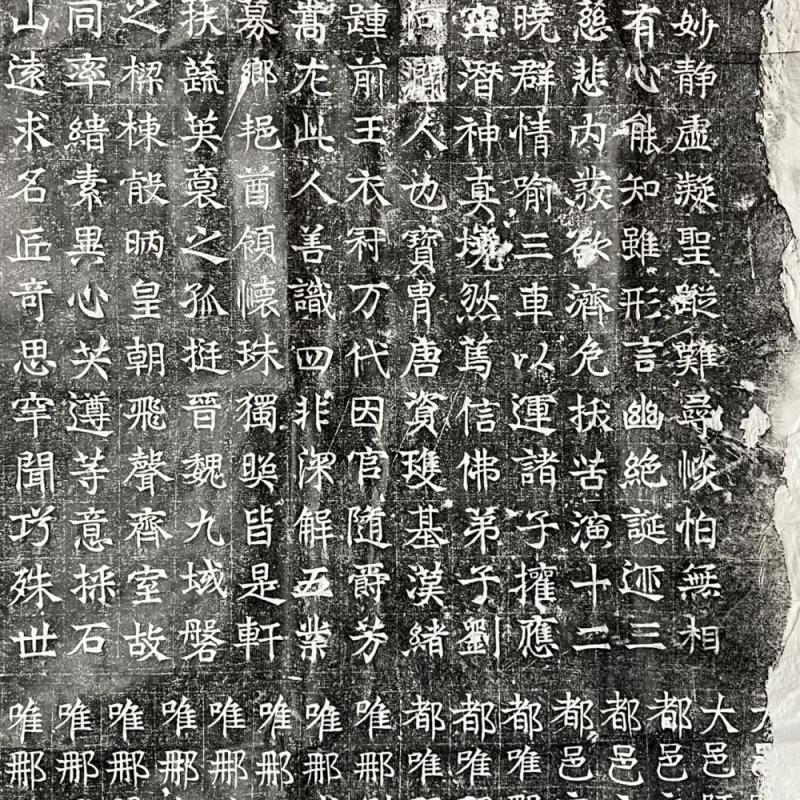 妙静虚凝聖蹤難尋惔怕無相
有心能知雖形言幽絶誕迹三
慈悲内發欲濟免拔苦演十二
曉群情喻三車以運諸子擁應
潛神真境然篤信佛弟子劉
河澗人也寶胄唐資瓊基漢緒
踵前王衣冠万代因官隨爵芳
嵩尤此人善識四非深解五業
募鄉酋領懷珠獨皆是軒
扶蔬英之孤挺晉魏九域磐
之樑棟殷昞皇朝飛聲齊室故
同率緒素異心共遵等意採石
山遠求名匠奇思罕聞巧殊世
大邑
都邑
都邑
都邑
都唯
都唯
都唯
唯那
唯那
唯那
唯那
唯那
唯那
唯那
唯那